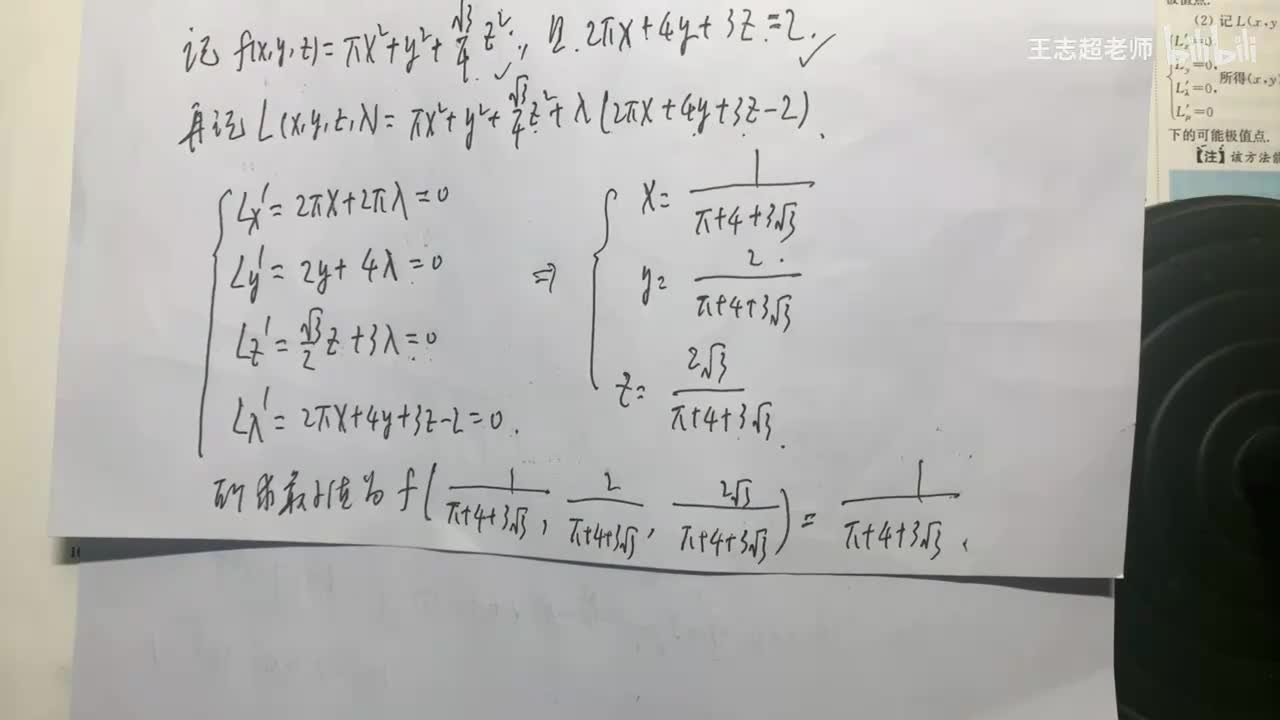 记 f(x,y,z)=πx²+y²+√3/4 z², 且 2πx+4y+3z=2.
再记 L(x,y,z,λ)=πx²+y²+√3/4 z²+λ(2πx+4y+3z-2).
Lx'=2πx+2πλ=0
Ly'=2y+4λ=0
Lz'=√3/2 z+3λ=0
Lλ'=2πx+4y+3z-2=0.
⇒
x=1/(π+4+3√3)
y=2/(π+4+3√3)
z=2√3/(π+4+3√3).
所求最小值为 f(1/(π+4+3√3), 2/(π+4+3√3), 2√3/(π+4+3√3))=1/(π+4+3√3).
王志超老师 bilibili
(2) 记L(x,y
L'y=0,
L'λ=0,
L'μ=0
所得(x,y
下的可能极值点.
【注】该方法能